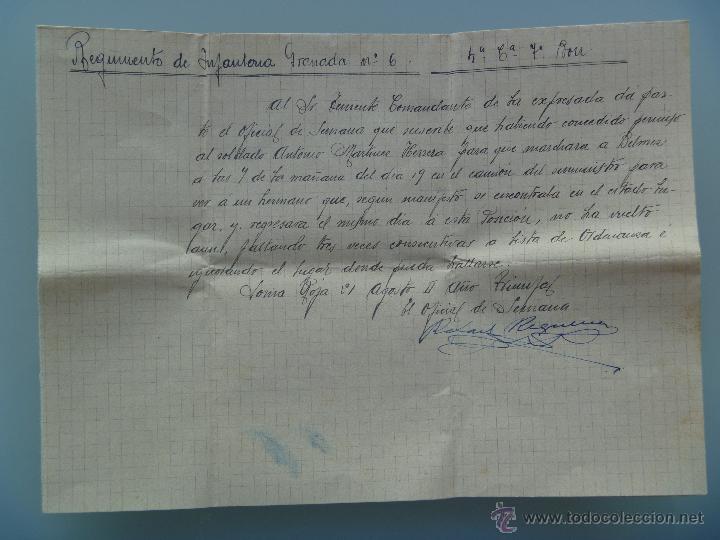 Regimiento de Infanteria Granada nº 6. 4ª Cª 7º Bon
Al Sr. Teniente Comandante de la expresada da par-
te el Oficial de Semana que suscribe que habiendo concedido permiso
al soldado Antonio Martinez Herrera para que marchara a Belmez
a las 7 de la mañana del dia 19 en el camión del suministro para
ver a un hermano que, segun manifestó se encontraba en el citado lu-
gar, y regresara el mismo dia a esta Posicion, no ha vuelto
aun, faltando tres veces consecutivas a lista de Ordenanza e
ignorando el lugar donde pueda hallarse.
Loma Roja 21 Agosto II Año Triunfal
El Oficial de Semana
Rafael Reguera
© todocoleccion
www.todocoleccion.net